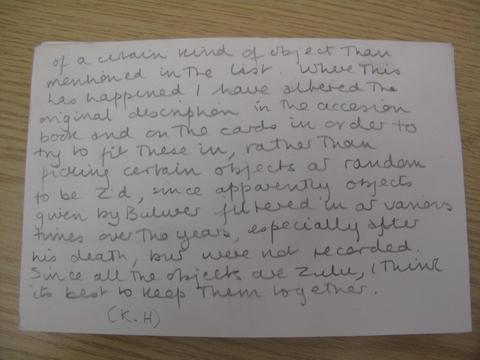 of a certain kind of object than
mentioned in the list. Where this
has happened I have altered the
original description in the accession
book and on the cards in order to
try to fit these in, rather than
picking certain objects at random
to be Z'd, since apparently objects
given by Bulwer filtered in at various
times over the years, especially after
his death, but were not recorded.
Since all the objects are Zulu, I think
its best to keep them together.
(K.H)